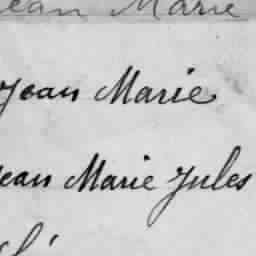 Jean Marie
Jean Marie
Jean Marie Jules